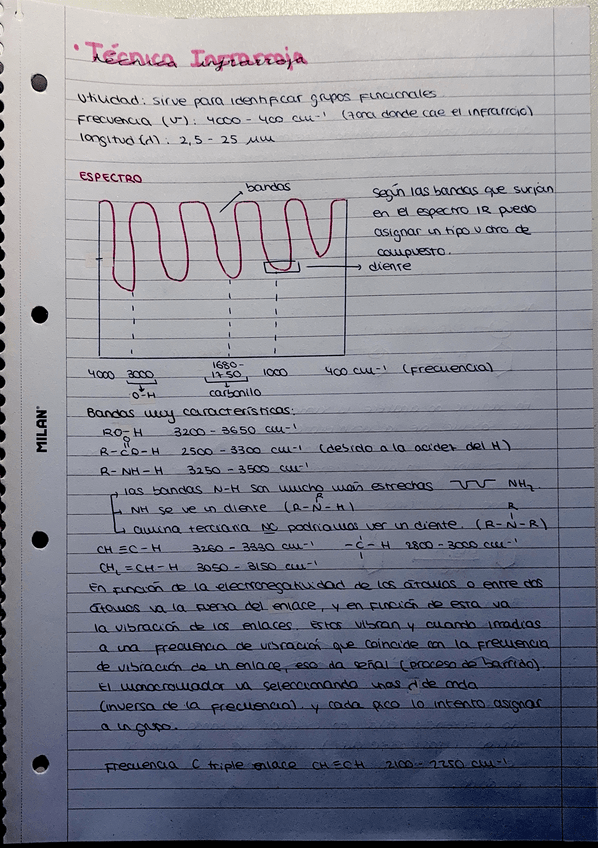 · Técnica Infrarroja
Utilidad: sirve para identificar grupos funcionales
Frecuencia (ν): 4000 - 400 cm⁻¹ (zona donde cae el infrarrojo)
longitud (λ): 2,5 - 25 μm
ESPECTRO
bandas
Según las bandas que surjan
en el espectro IR puedo
asignar un tipo u otro de
compuesto.
diente
4000 3000 1680-1750 1000 400 cm⁻¹ (Frecuencia)
O-H carbonilo
Bandas muy características:
RO-H 3200 - 3650 cm⁻¹
O
R-CO-H 2500 - 3300 cm⁻¹ (debido a la acidez del H)
R-NH-H 3250 - 3500 cm⁻¹
las bandas N-H son mucho más estrechas NH₂
R
NH se ve un diente (R-N-H)
R
amina terciaria NO podríamos ver un diente. (R-N-R)
CH≡C-H 3260 - 3330 cm⁻¹ -C-H 2800 - 3000 cm⁻¹
CH₂=CH-H 3050 - 3150 cm⁻¹
En función de la electronegatividad de los átomos o entre dos
átomos va la fuerza del enlace, y en función de esta va
la vibración de los enlaces. Estos vibran y cuando irradias
a una frecuencia de vibración que coincide con la frecuencia
de vibración de un enlace, eso da señal (proceso de barrido)
El monocromador va seleccionando unas λ de onda
(inversa de la frecuencia) y cada pico lo intento asignar
a un grupo.
Frecuencia C triple enlace CH≡CH 2100 - 2250 cm⁻¹
MILAN